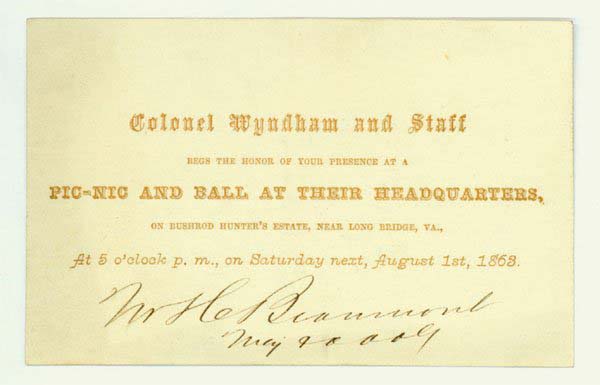 Colonel Wyndham and Staff
BEGS THE HONOR OF YOUR PRESENCE AT A
PIC-NIC AND BALL AT THEIR HEADQUARTERS,
ON BUSHROD HUNTER'S ESTATE, NEAR LONG BRIDGE, VA.,
At 5 o'clock p. m., on Saturday next, August 1st, 1863.
Beaumont
Maj